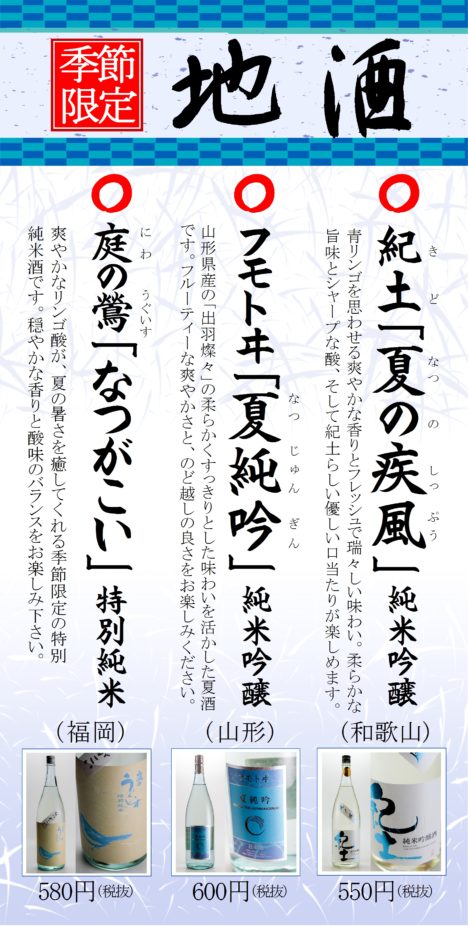 季節
限定
地酒
紀土「夏の疾風」純米吟醸
きど なつ の しっぷう
青リンゴを思わせる爽やかな香りとフレッシュで瑞々しい味わい。柔らかな
旨味とシャープな酸、そして紀土らしい優しい口当たりが楽しめます。
(和歌山)
紀土
純米吟醸酒
550円(税抜)
フモトヰ「夏純吟」純米吟醸
なつ じゅん ぎん
山形県産の「出羽燦々」の柔らかくすっきりとした味わいを活かした夏酒
です。フルーティーな爽やかさと、のど越しの良さをお楽しみください。
(山形)
フモトヰ
夏純吟
600円(税抜)
庭の鶯「なつがこい」特別純米
にわ うぐいす
爽やかなリンゴ酸が、夏の暑さを癒してくれる季節限定の特別
純米酒です。穏やかな香りと酸味のバランスをお楽しみ下さい。
(福岡)
580円(税抜)